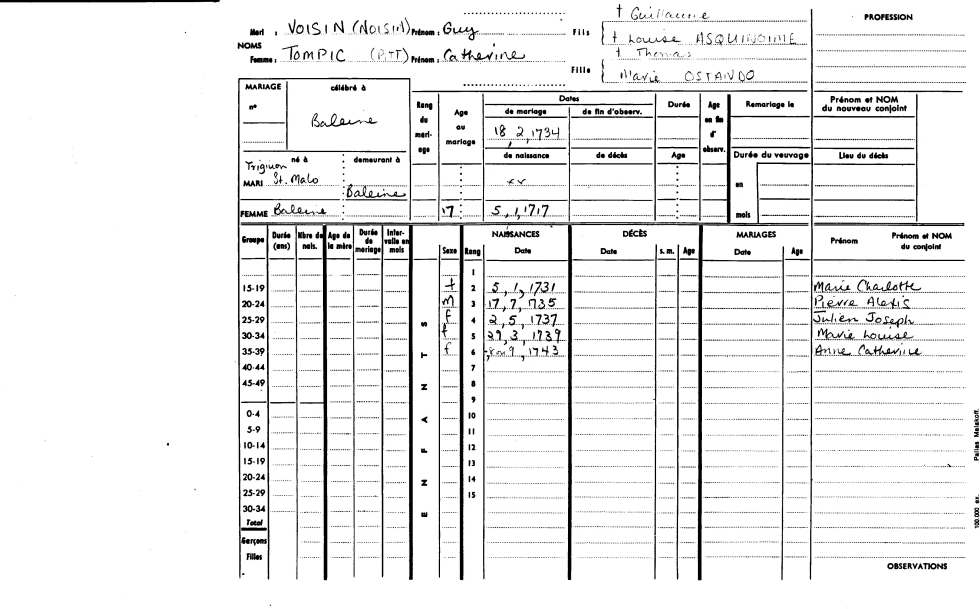 † Guillaume
PROFESSION
Mari : VOISIN (NOISIN) Prénom : Guy Fils † Louise ASQUINOINE
NOMS † Thomas
Femme : TOMPIC (PITT) Prénom : Catherine Fille Marie OSTANDO
MARIAGE célébré à Rang du mariage Age au mariage Dates Durée Age en fin d'observ. Remariage le Prénom et NOM du nouveau conjoint
nº Baleine de mariage de fin d'observ.
18, 2, 1734
de naissance de décès Age Durée du veuvage Lieu du décès
né à demeurant à
MARI St. Malo Baleine xx en
FEMME Baleine 17 5, 1, 1717 mois
Groupe Durée (ans) Nbre de nais. Age de la mère Durée de mariage Intervalle en mois ENFANTS Sexe Rang NAISSANCES Date DÉCÈS Date s. m. Age MARIAGES Date Age Prénom Prénom et NOM du conjoint
1
15-19 f 2 5, 1, 1731 Marie Charlotte
20-24 m 3 17, 7, 1735 Pierre Alexis
25-29 f 4 2, 5, 1737 Julien Joseph
30-34 f 5 29, 3, 1739 Marie Louise
35-39 f 6 8 ou 9, 1743 Anne Catherine
40-44 7
45-49 8
9
0-4 10
5-9 11
10-14 12
15-19 13
20-24 14
25-29 15
30-34
Total
Garçons
Filles
OBSERVATIONS
100.000 ex. Pallas Malakoff.